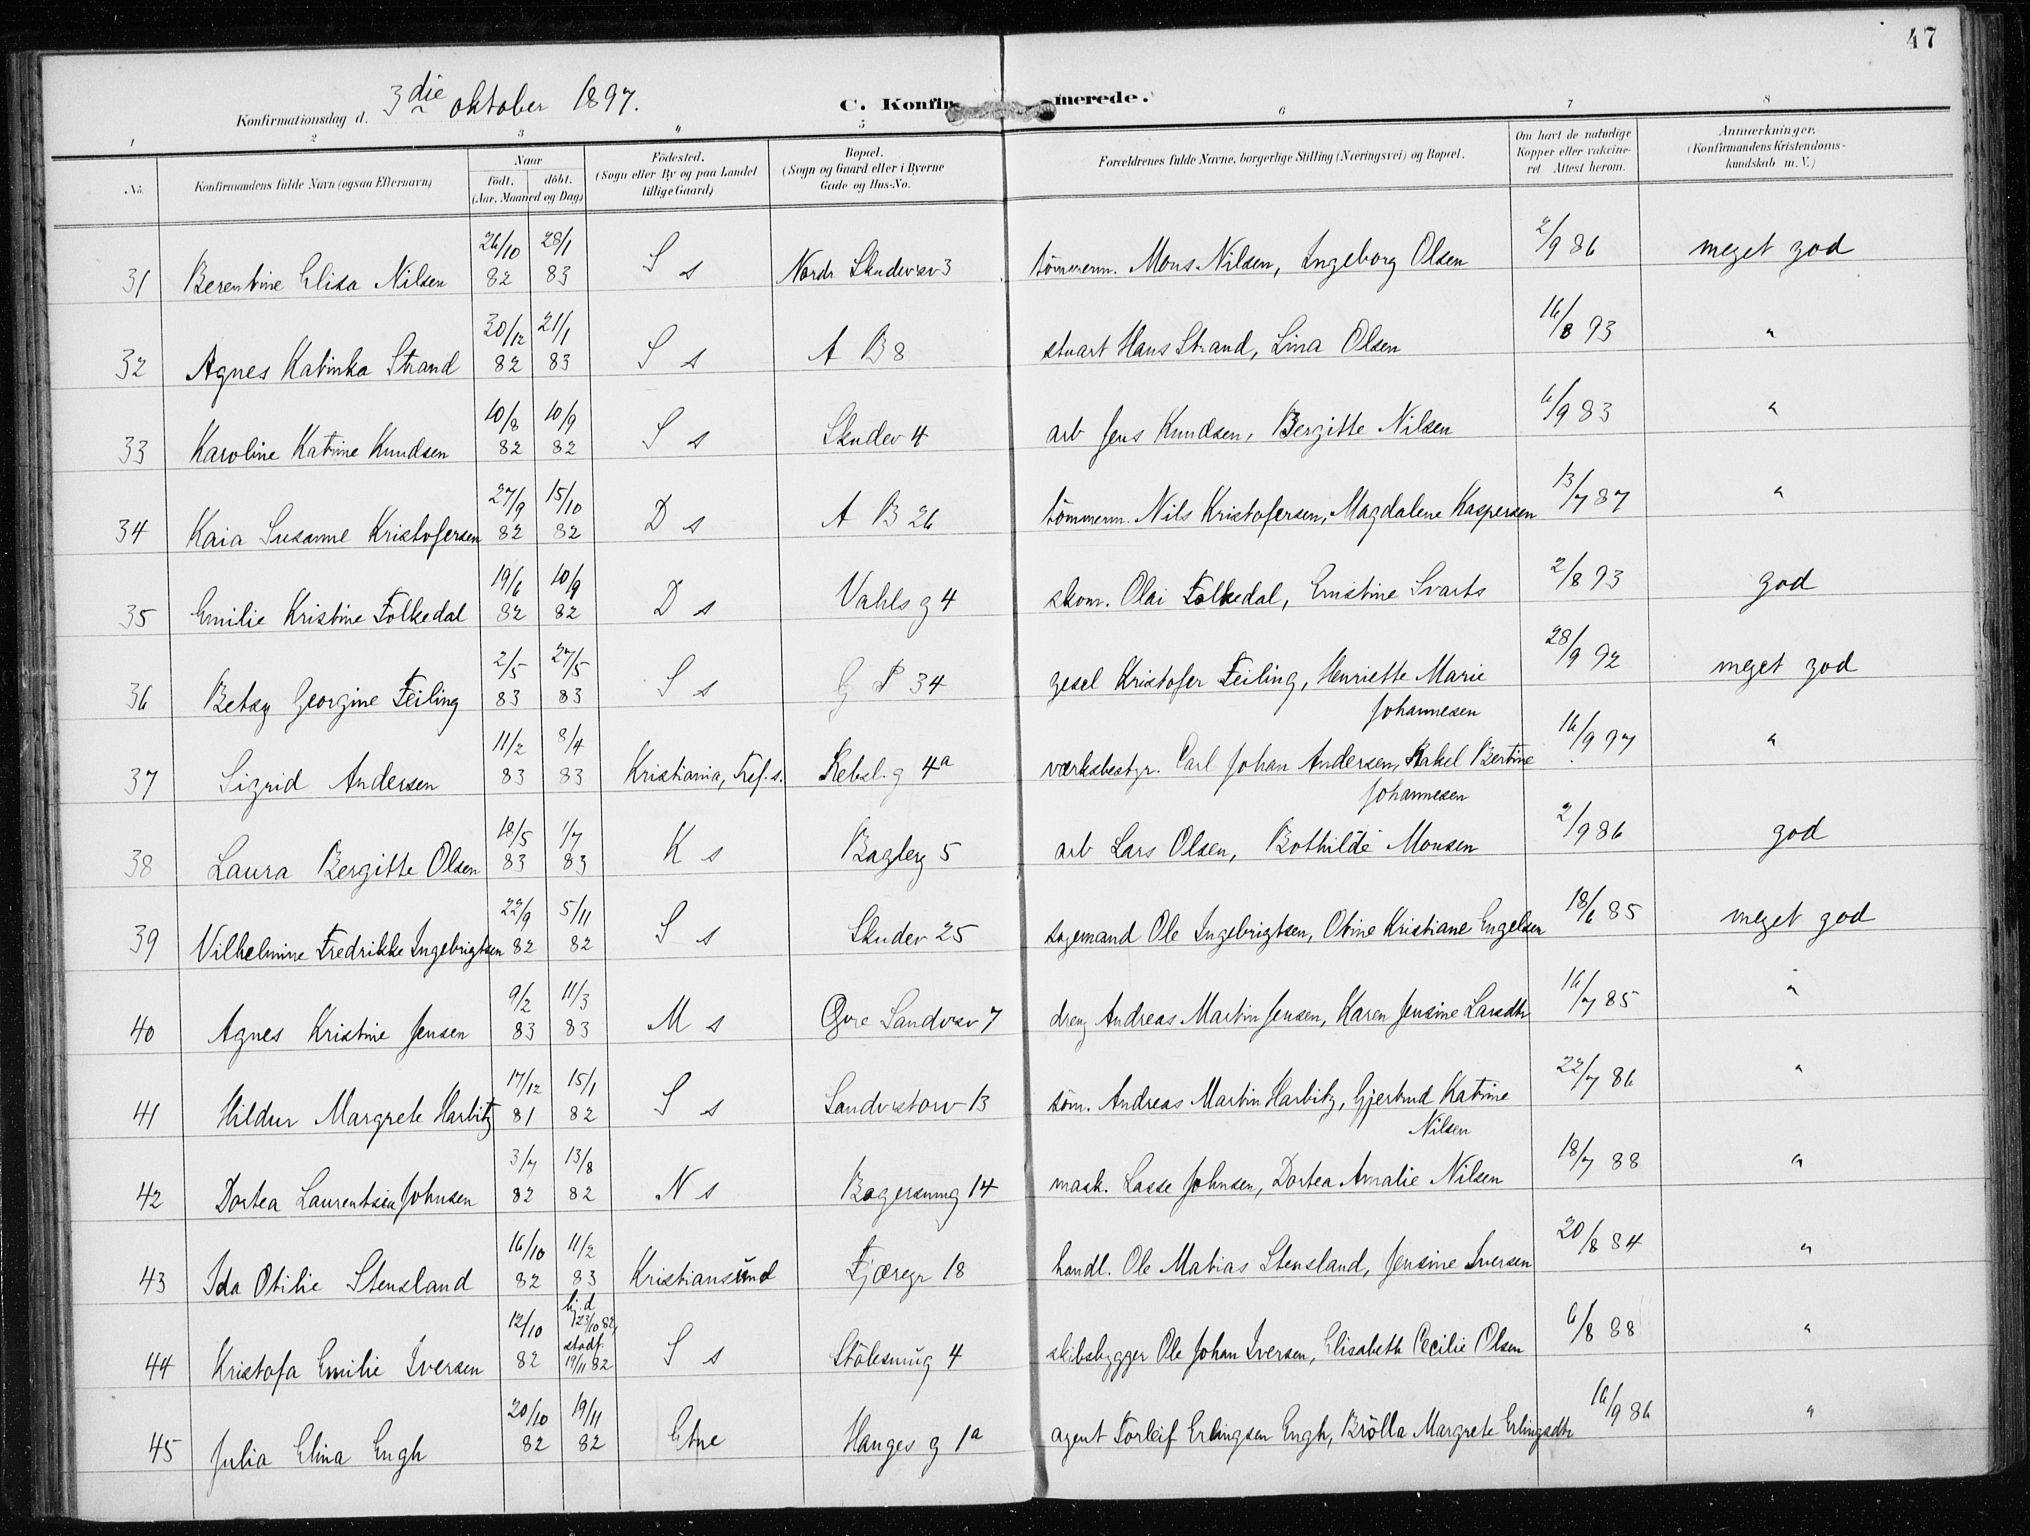 47
Konfirmationsdag d. 3die oktober 1897.
C. Konfirmerede.
1 2 3 4 5 6 7 8
No. Konfirmandens fulde Navn (ogsaa Efternavn)
Naar født. døbt. (Aar, Maaned og Dag)
Fødested. (Sogn eller By og paa Landet tillige Gaard)
Bopæl. (Sogn og Gaard eller i Byerne Gade og Hus-No.
Forældrenes fulde Navne, borgerlige Stilling (Næringsvei) og Bopæl.
Om havt de naturlige Kopper eller vakcineret Attest herom.
Anmærkninger. (Konfirmandens Kristendomskundskab m. V.)
31 Berentine Elisa Nilsen 26/10 82 28/1 83 S s Nordr Skudevsv 3 tømmerm. Mons Nilsen, Ingeborg Olsen 2/9 86 meget god
32 Agnes Katinka Strand 30/12 82 21/1 83 S s A B 8 stuart Hans Strand, Lina Olsen 16/8 93 "
33 Karoline Katrine Knudsen 10/8 82 10/9 82 S s Skudev 4 arb Jens Knudsen, Bergitte Nilsen 6/9 83 "
34 Kaia Susanne Kristofersen 27/9 82 15/10 82 D s A B 26 tømmerm. Nils Kristofersen, Magdalene Kaspersen 13/7 87 "
35 Emilie Kristine Folkedal 19/6 82 10/9 82 D s Vahls g 4 skom. Olai Folkedal, Ernstine Svarts 2/8 93 god
36 Betsy Georgine Feiling 2/5 83 27/5 83 S s G P 34 gesel Kristofer Feiling, Henriette Marie Johannesen 28/9 92 meget god
37 Sigrid Andersen 11/2 83 8/4 83 Kristiania, Tref. s. Rebsl. g 4a værksbestyr. Carl Johan Andersen, Rakel Bertine Johannesen 16/9 97 "
38 Laura Bergitte Olsen 18/5 83 1/7 83 K s Bagberg 5 arb Lars Olsen, Bothilde Monsen 2/9 86 god
39 Vilhelmine Fredrikke Ingebrigtsen 22/9 82 5/11 82 S s Skudev 25 sagemand Ole Ingebrigtsen, Otine Kristiane Engelsen 18/6 85 meget god
40 Agnes Kristine Jensen 9/2 83 11/3 83 M s Øvre Sandvsv 7 dreng Andreas Martin Jensen, Karen Jensine Larsdtr 16/7 85 "
41 Hildur Margrete Harbitz 17/12 81 15/1 82 S s Sandvstorv 13 søm. Andreas Martin Harbitz, Gjertrud Katrine Nilsen 22/7 86 "
42 Dortea Laurentsia Johnsen 3/7 82 13/8 82 N s Bagersmug 14 mask. Lasse Johnsen, Dortea Amalie Nilsen 18/7 88 "
43 Ida Otilie Stensland 16/10 82 11/2 83 Kristiansund Fjæregr 18 handl. Ole Matias Stensland, Jensine Iversen 20/8 84 "
44 Kristofa Emilie Iversen 12/10 82 hj.d 23/10 82, stadf. 19/11 82 S s Stølesmug 4 skibsbygger Ole Johan Iversen, Elisabeth Cecilie Olsen 6/8 88 "
45 Julia Elina Engh 20/10 82 19/11 82 Etne Hauges g 1a agent Torleif Erlingsen Engh, Brölla Margrete Erlingsdtr 16/9 86 "